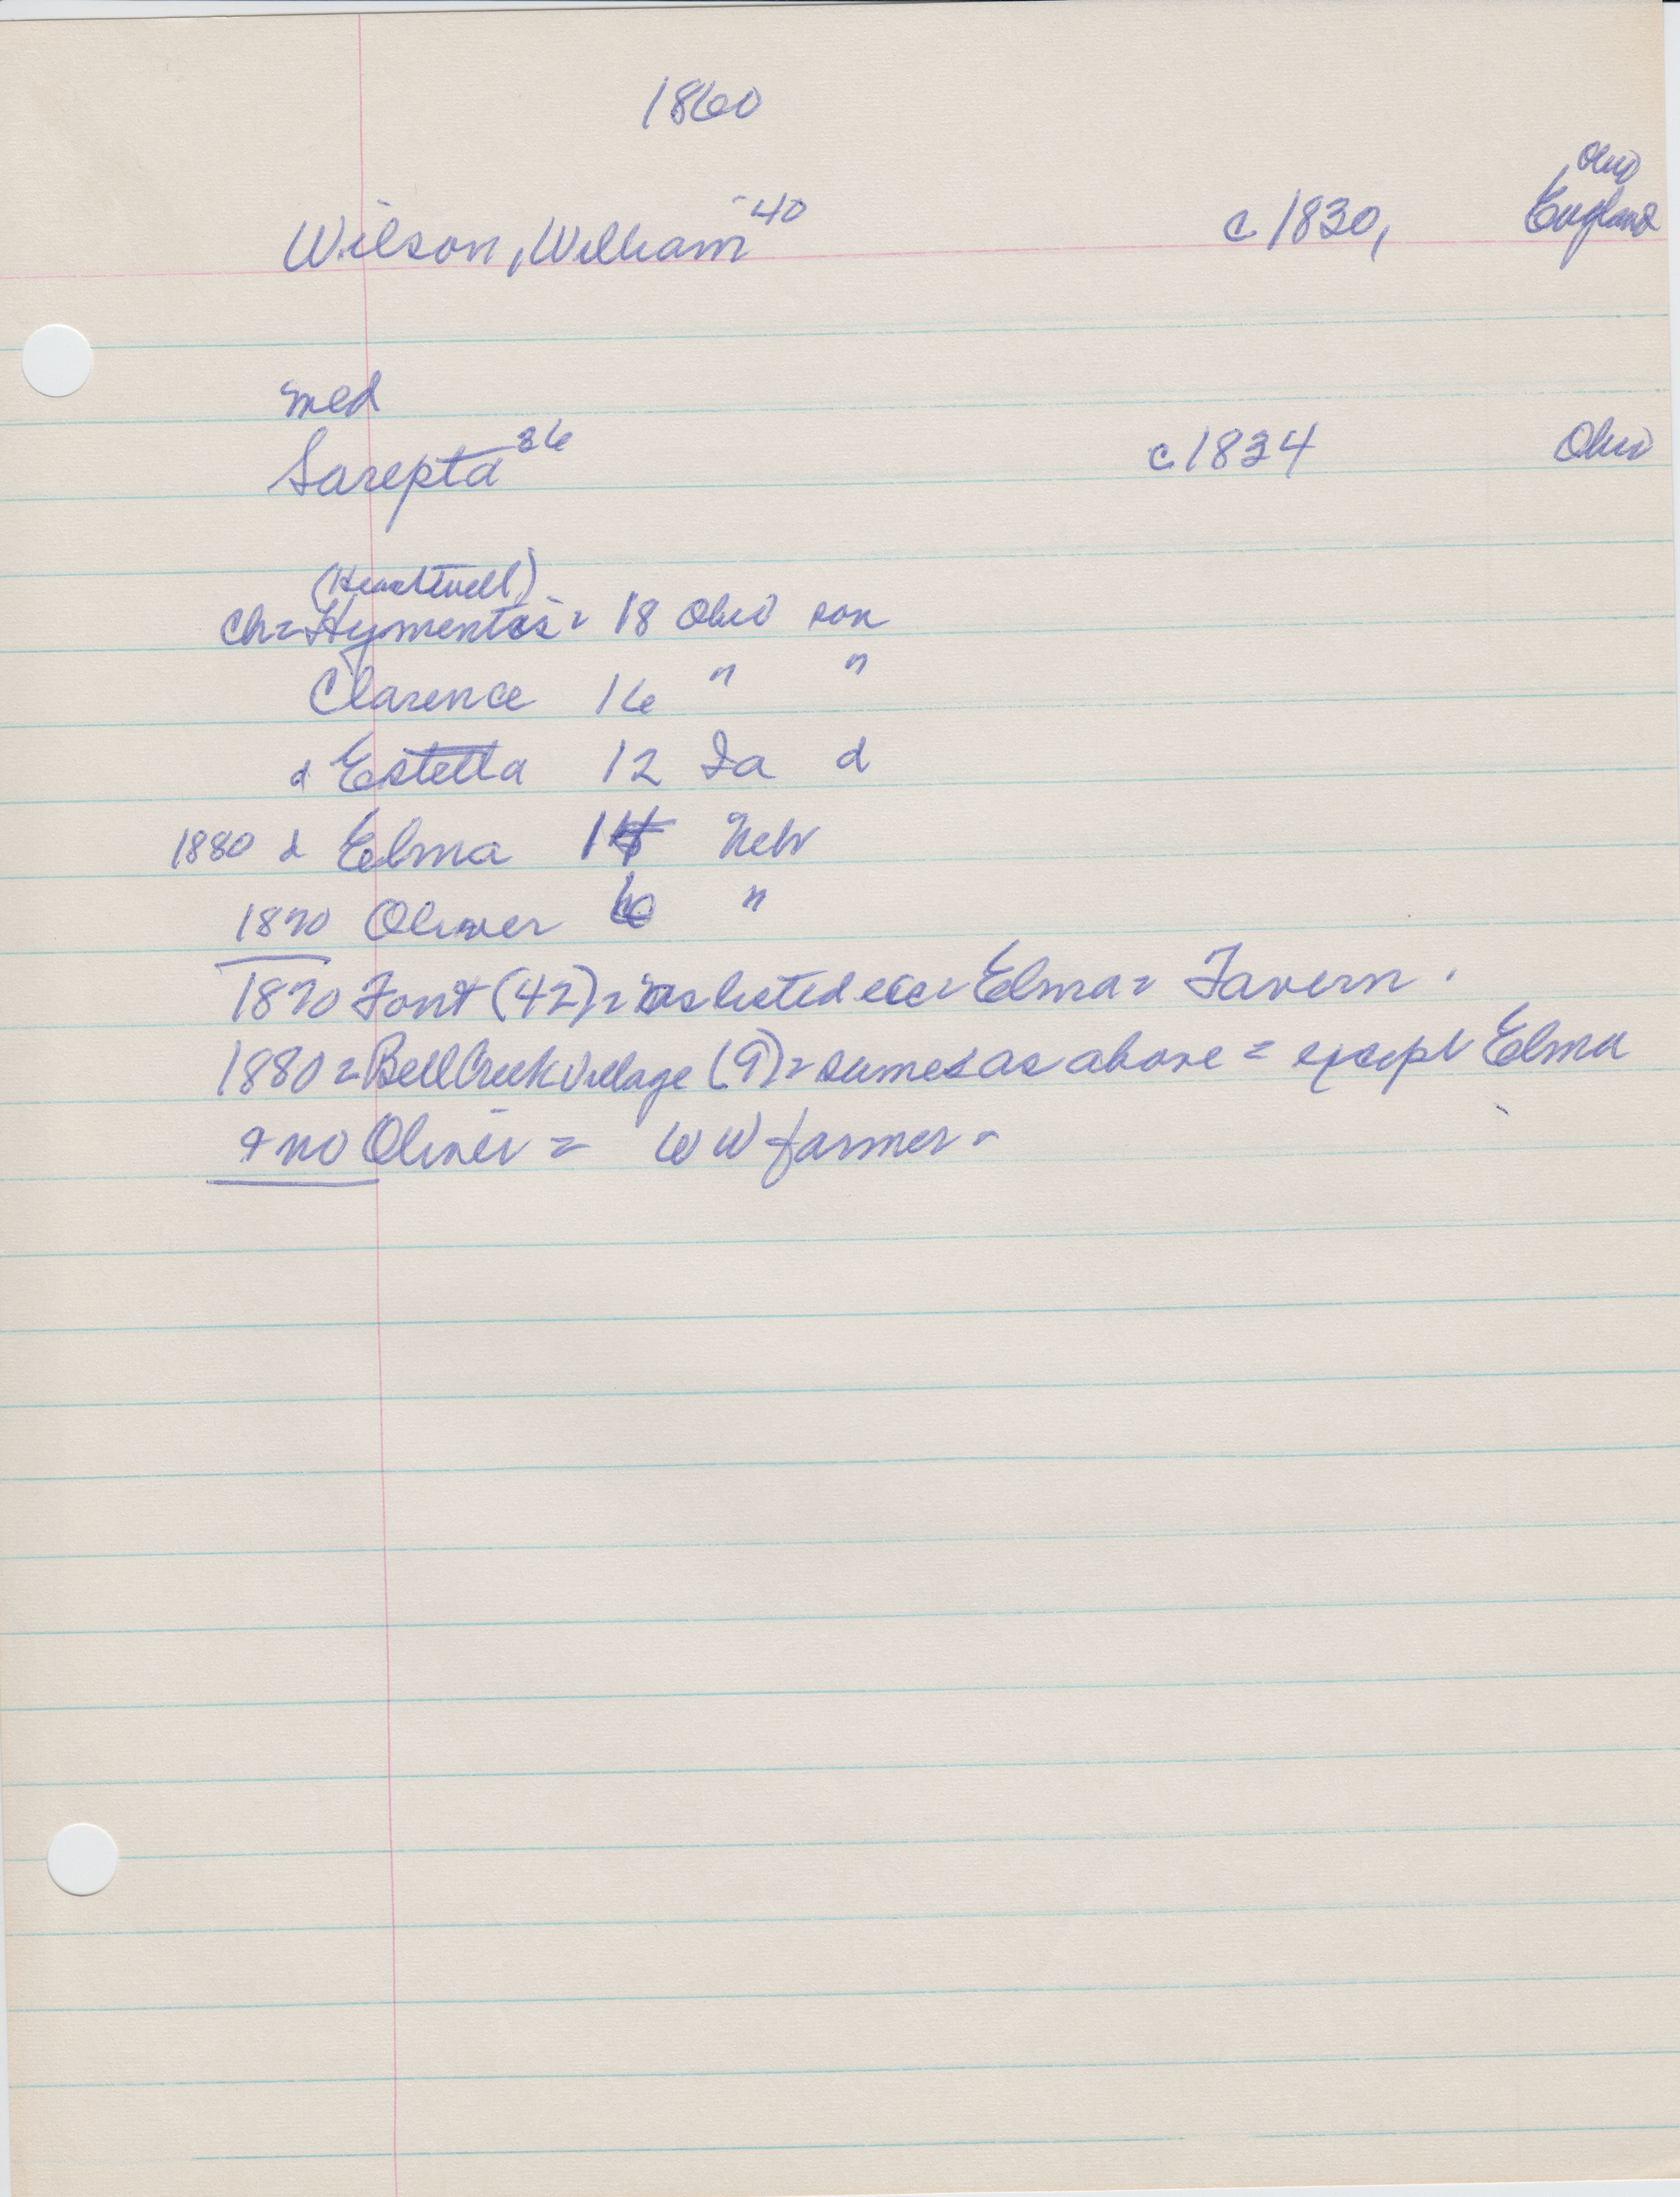 1860
Ohio
Wilson, William -40 c 1830, England
med
Sarepta 36 c 1834 Ohio
(Heartwell)
Ch = Hymentos = 18 Ohio son
Clarence 16 " "
d Estella 12 Ia d
1880 d Elma Nebr
1870 Oliver "
1870 Font (42) = as listed = Elma = Tavern.
1880 = Bell Creek Village (9) = sames as above = except Elma
& no Oliver = W W farmer -